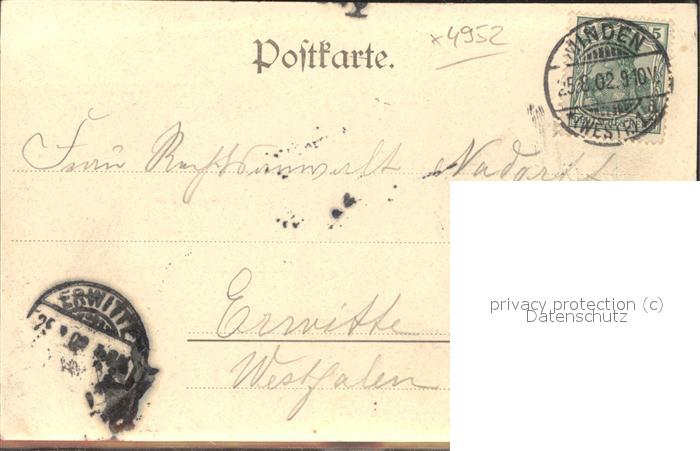 ×4952
Postkarte.
5
MINDEN
25.8.02.9-10V.
(WESTF)1.a
Frau Rechtsanwalt
privacy protection (c)
Datenschutz
ERWITTE
Erwitte
Westfalen